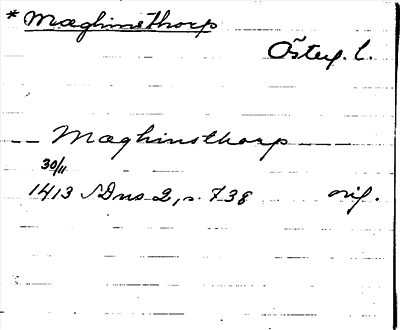 * Mæghinsthorp
Österg. l.
-- Mæghinsthorp ---
30/11
1413 SDns 2, s. 738 orig.